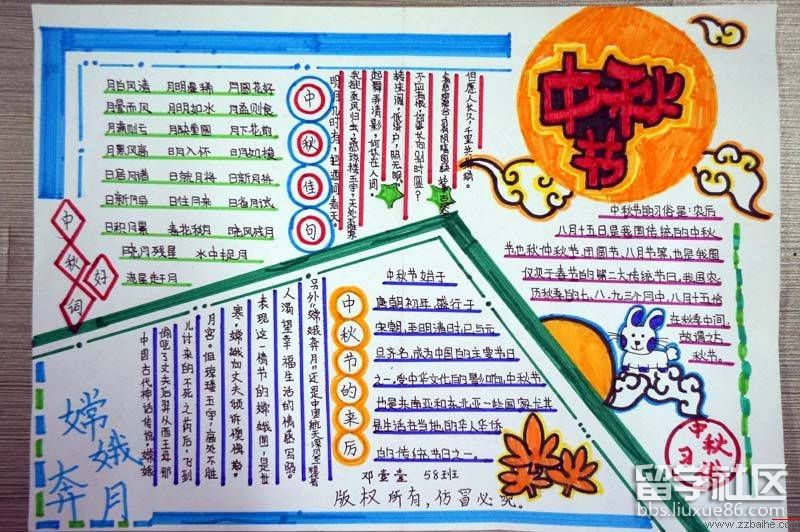 中秋节
月白风清 月明星稀 月圆花好
月晕而风 月明如水 月盈则食
月满则亏 月缺重圆 月下花前
月黑风高 日月如梭
日居月诸 日就月将 日新月将
日新月异 日往月来 日省月试
日积月累 春花秋月 晓风残月
晓月残星 水中捉月
流星赶月
中秋好词
中秋佳句
明月几时有,把酒问青天。
起舞弄清影,何似在人间。
转朱阁,低绮户,照无眠。
不应有恨,何事长向别时圆?
但愿人长久,千里共婵娟。
中秋节的习俗是:农历
八月十五日是我国传统的中秋
节也称仲秋节、团圆节、八月节等,也是我国
仅次于春节的第二大传统节日,我国农
历秋季的七、八、九三个月中,八月十五恰
在秋季中间
故谓之
秋节。
中秋习俗
中秋节的来历
中秋节始于
唐朝初年,盛行于
宋朝,至明清时已与元
旦齐名,成为中国的主要节日
之一。受中华文化的影响,中秋节
也是东南亚和东北亚一些国家尤其
是生活在当地的华人华侨
的传统节日之一。
嫦娥奔月
中国古代神话传说,嫦娥
偷吃了丈夫后羿从西王母那
儿讨来的不死之药后,飞到
月宫。但琼楼玉宇,高处不胜
寒,嫦娥向丈夫倾诉懊悔。
表现这一情节的嫦娥图,是世
人渴望幸福生活的情感写照。
邓莹莹 58班
版权所有,仿冒必究。
留学社区
bbs.liuxue86.com
www.zzbaihe.com